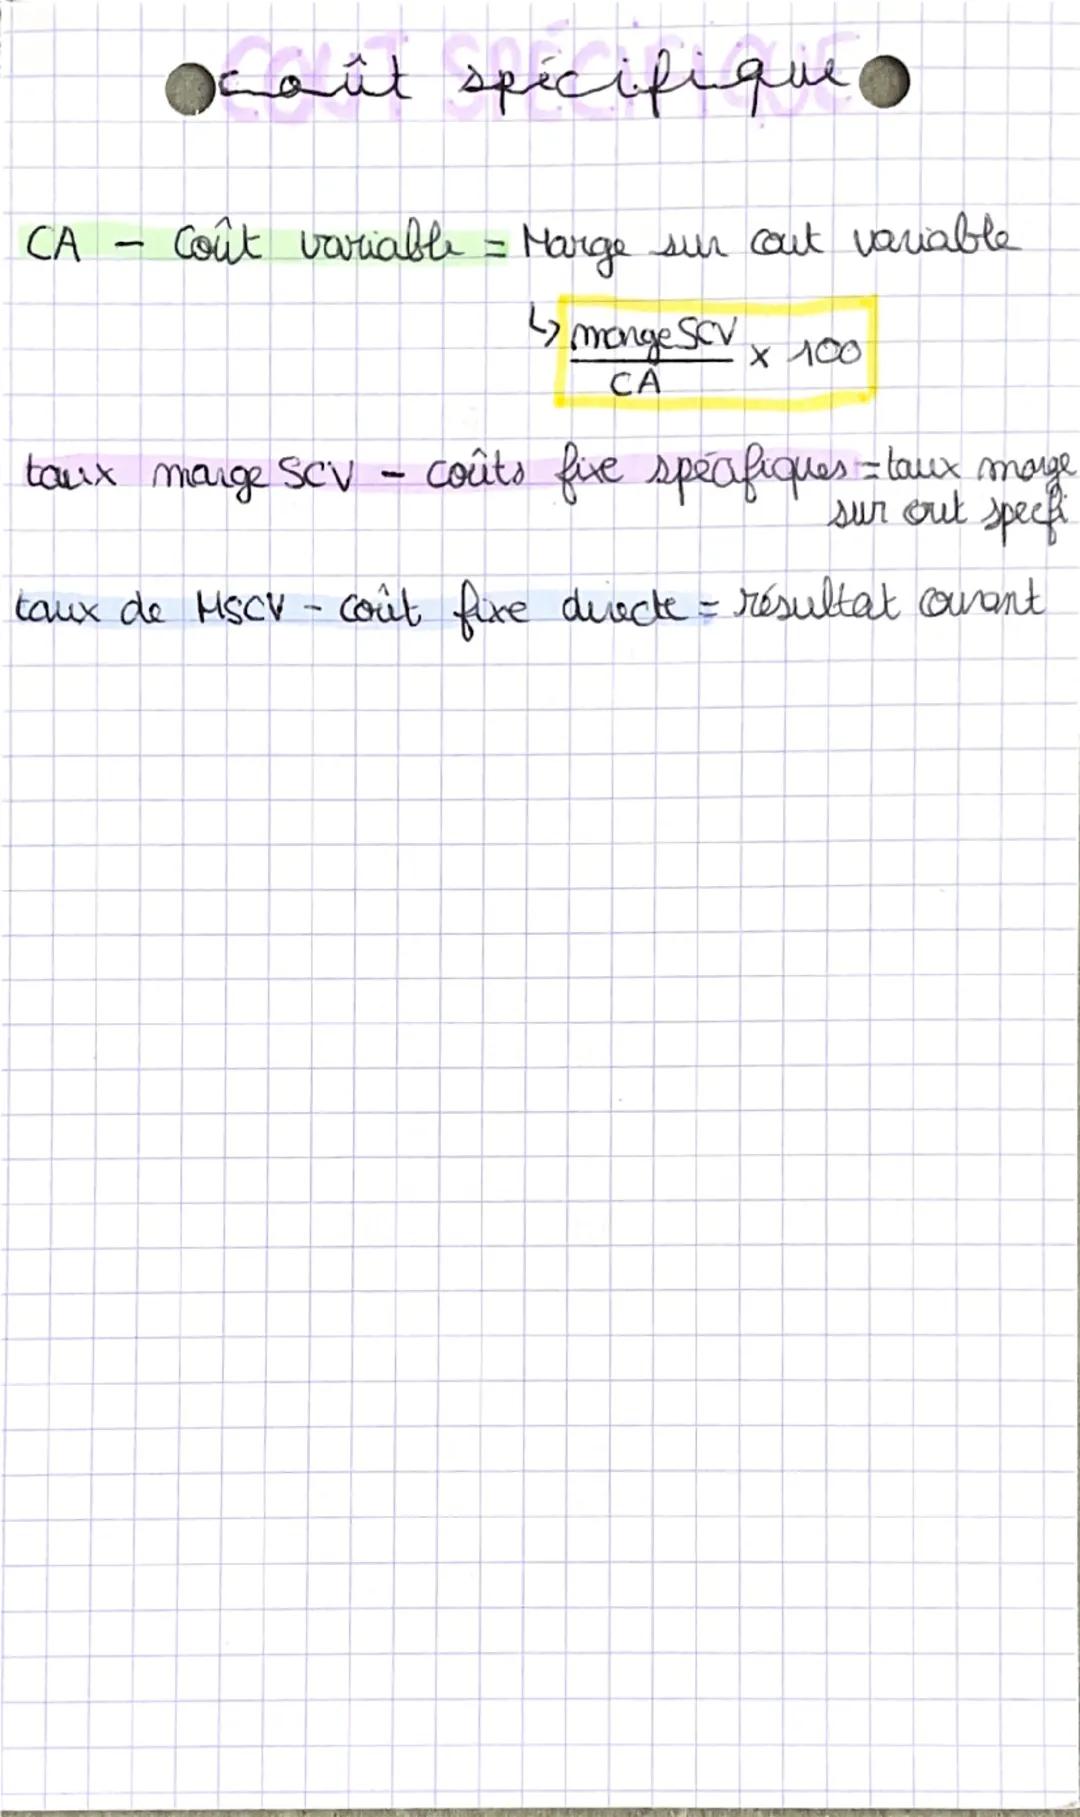 COUT SPÉCIFIQUE
coût spécifique
CA - Coût variable = Marge sur cout variable
↳ marge SCV / CA x 100
taux marge SCV - coûts fixe spécifiques = taux marge
sur cout specfi
taux de MSCV - coût fixe directe = résultat courant